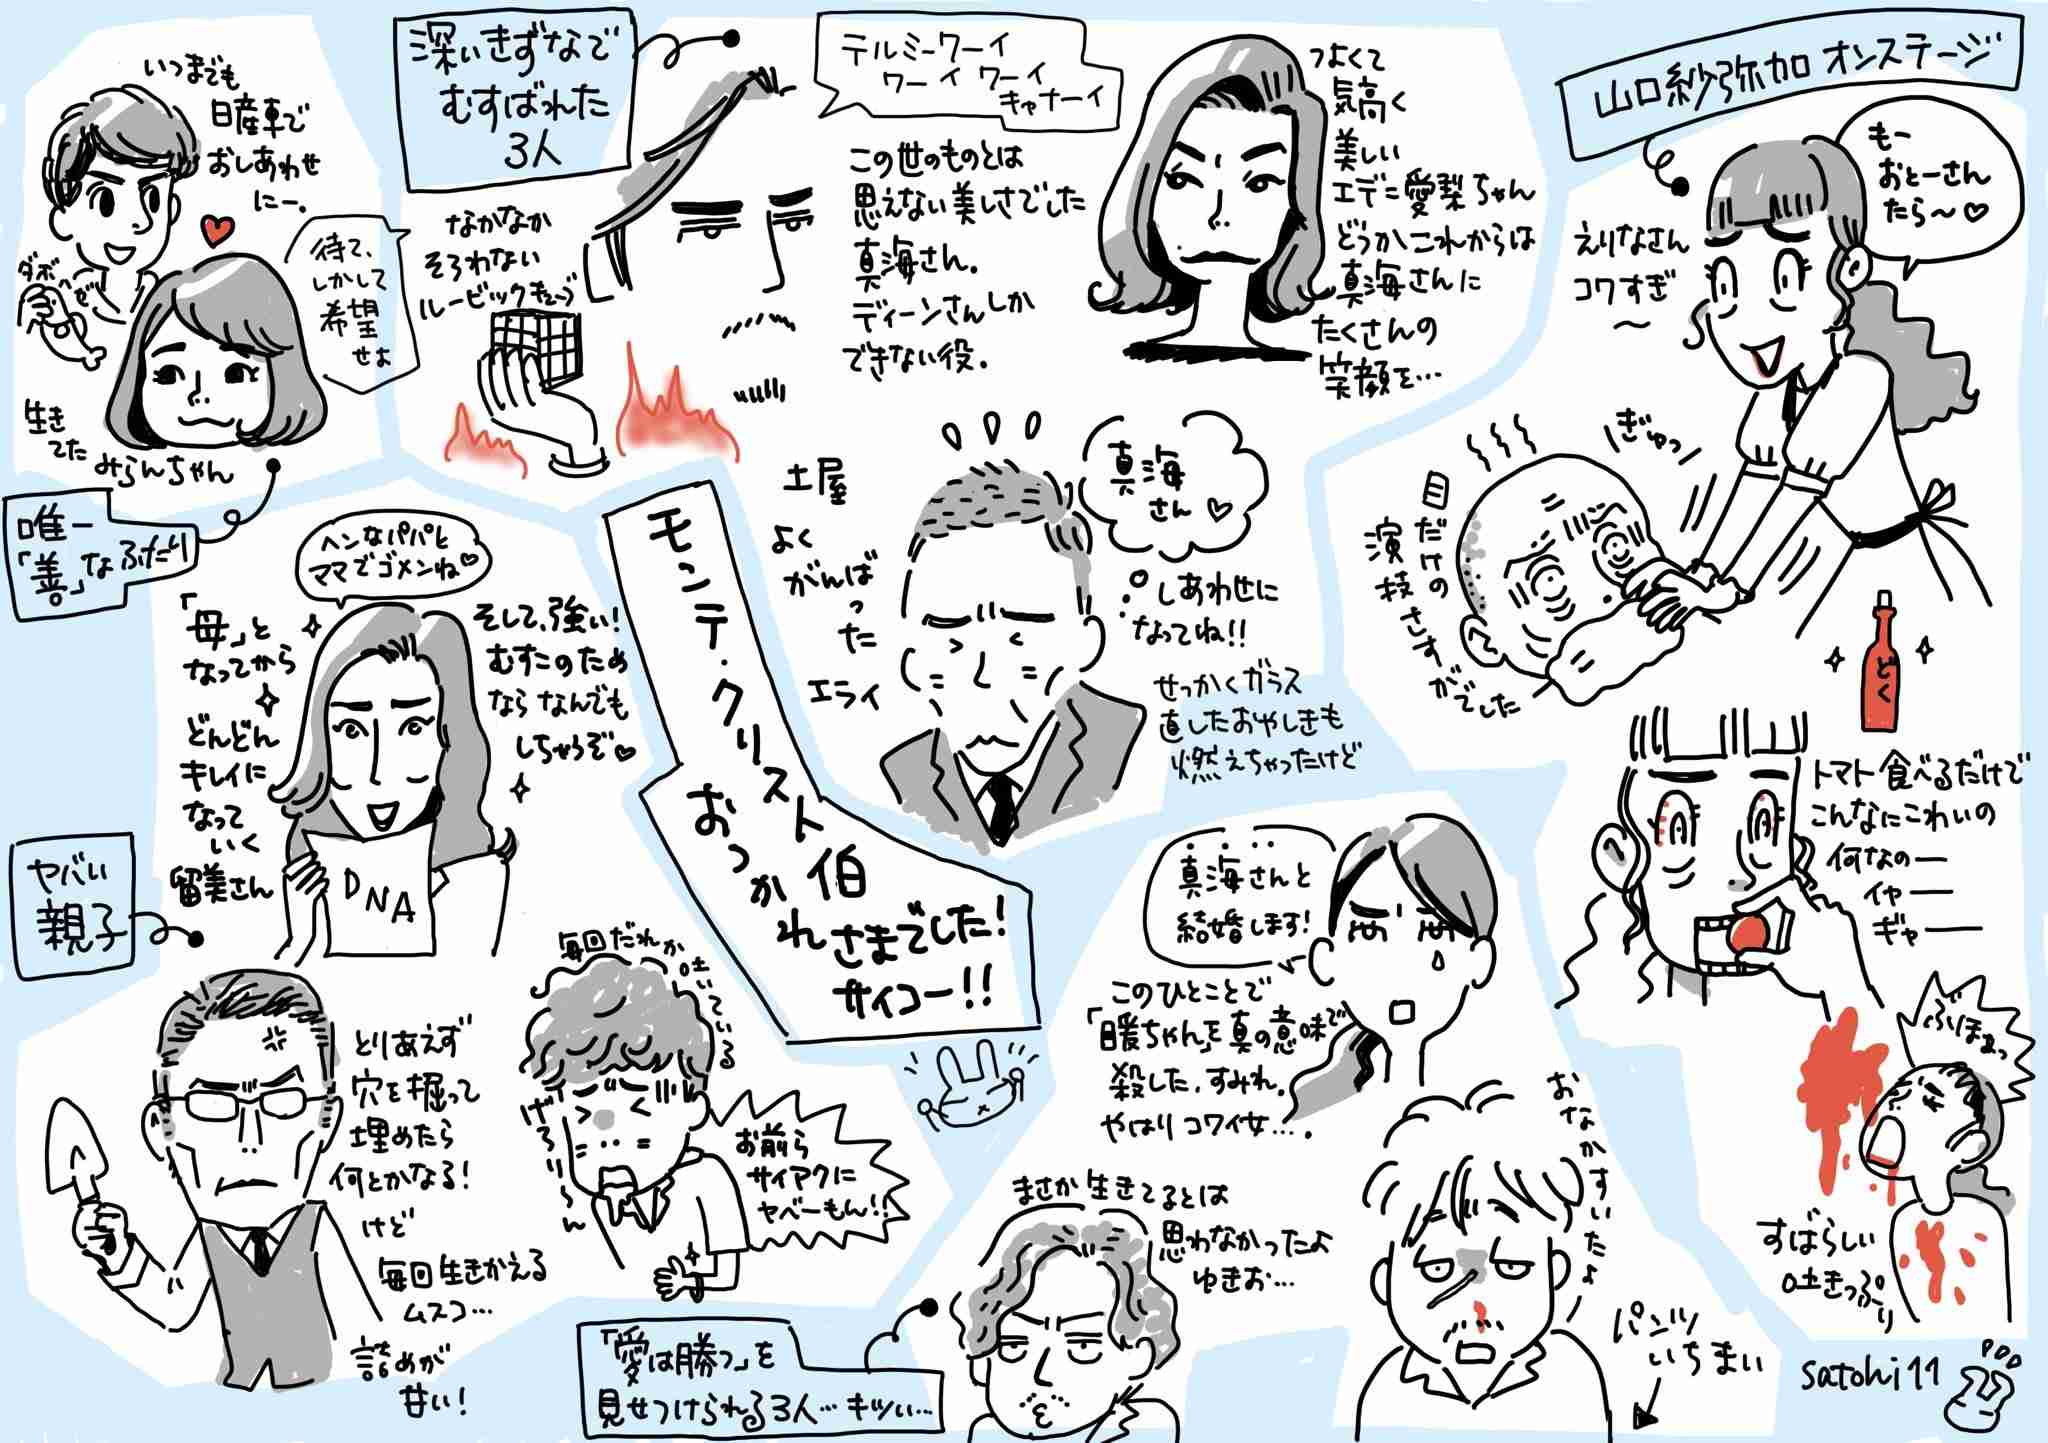 いつまでも
日産車で
おしあわせ
にー。
ダボ
ハゼ
待て、
しかして
希望
せよ
生き
てた
みらんちゃん
唯一
「善」なふたり
深いきずなで
むすばれた
3人
なかなか
そろわない
ルービックキューブ
テルミーワーイ
ワーイ ワーイ
キャナーイ
この世のものとは
思えない美しさでした
真海さん。
ディーンさんしか
できない役。
つよくて
気高く
美しい
エデニ愛梨ちゃん
どうかこれからは
真海さんに
たくさんの
笑顔を…
山口紗弥加 オンステージ
もー
おとーさん
たら〜♡
えりなさん
コワすぎ
〜
ぎゅっ
目だけの
演技さすがでした
どく
トマト食べるだけで
こんなにこわいの
何なのー
イヤー
ギャー
ぶりほぉっ
すばらしい
吐きっぷり
土屋
よく
がんば
った
エライ
真海
さん♡
しあわせに
なってね!!
せっかくガラス
直したおやしきも
燃えちゃったけど
モンテ・クリスト伯
おつかれさまでした!
サイコー!!
ヘンなパパと
ママでゴメンね♡
「母」と
なってから
どんどん
キレイに
なって
いく
留美さん
そして、強い!
むすこのため
ならなんでも
しちゃうぞ♡
DNA
ヤバい
親子
とりあえず
穴を掘って
埋めたら
何とかなる!
けど
毎回生きかえる
ムスコ…
詰めが
甘い!
毎回だれか
吐いている
げろりーん
お前ら
サイアクに
ヤベーもん!!
真海さんと
結婚します!
このひとことで
「暖ちゃん」を真の意味で
殺した、すみれ。
やはりコワイ女…。
「愛は勝つ」を
見せつけられる3人…キツい…
まさか生きてるとは
思わなかったよ
ゆきお…
おなかすいたよ
パンツ
いちまい
satohi11